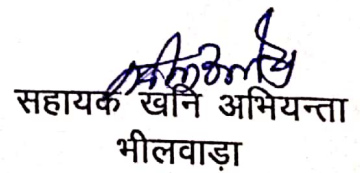 सहायक खनि अभियन्ता
भीलवाड़ा